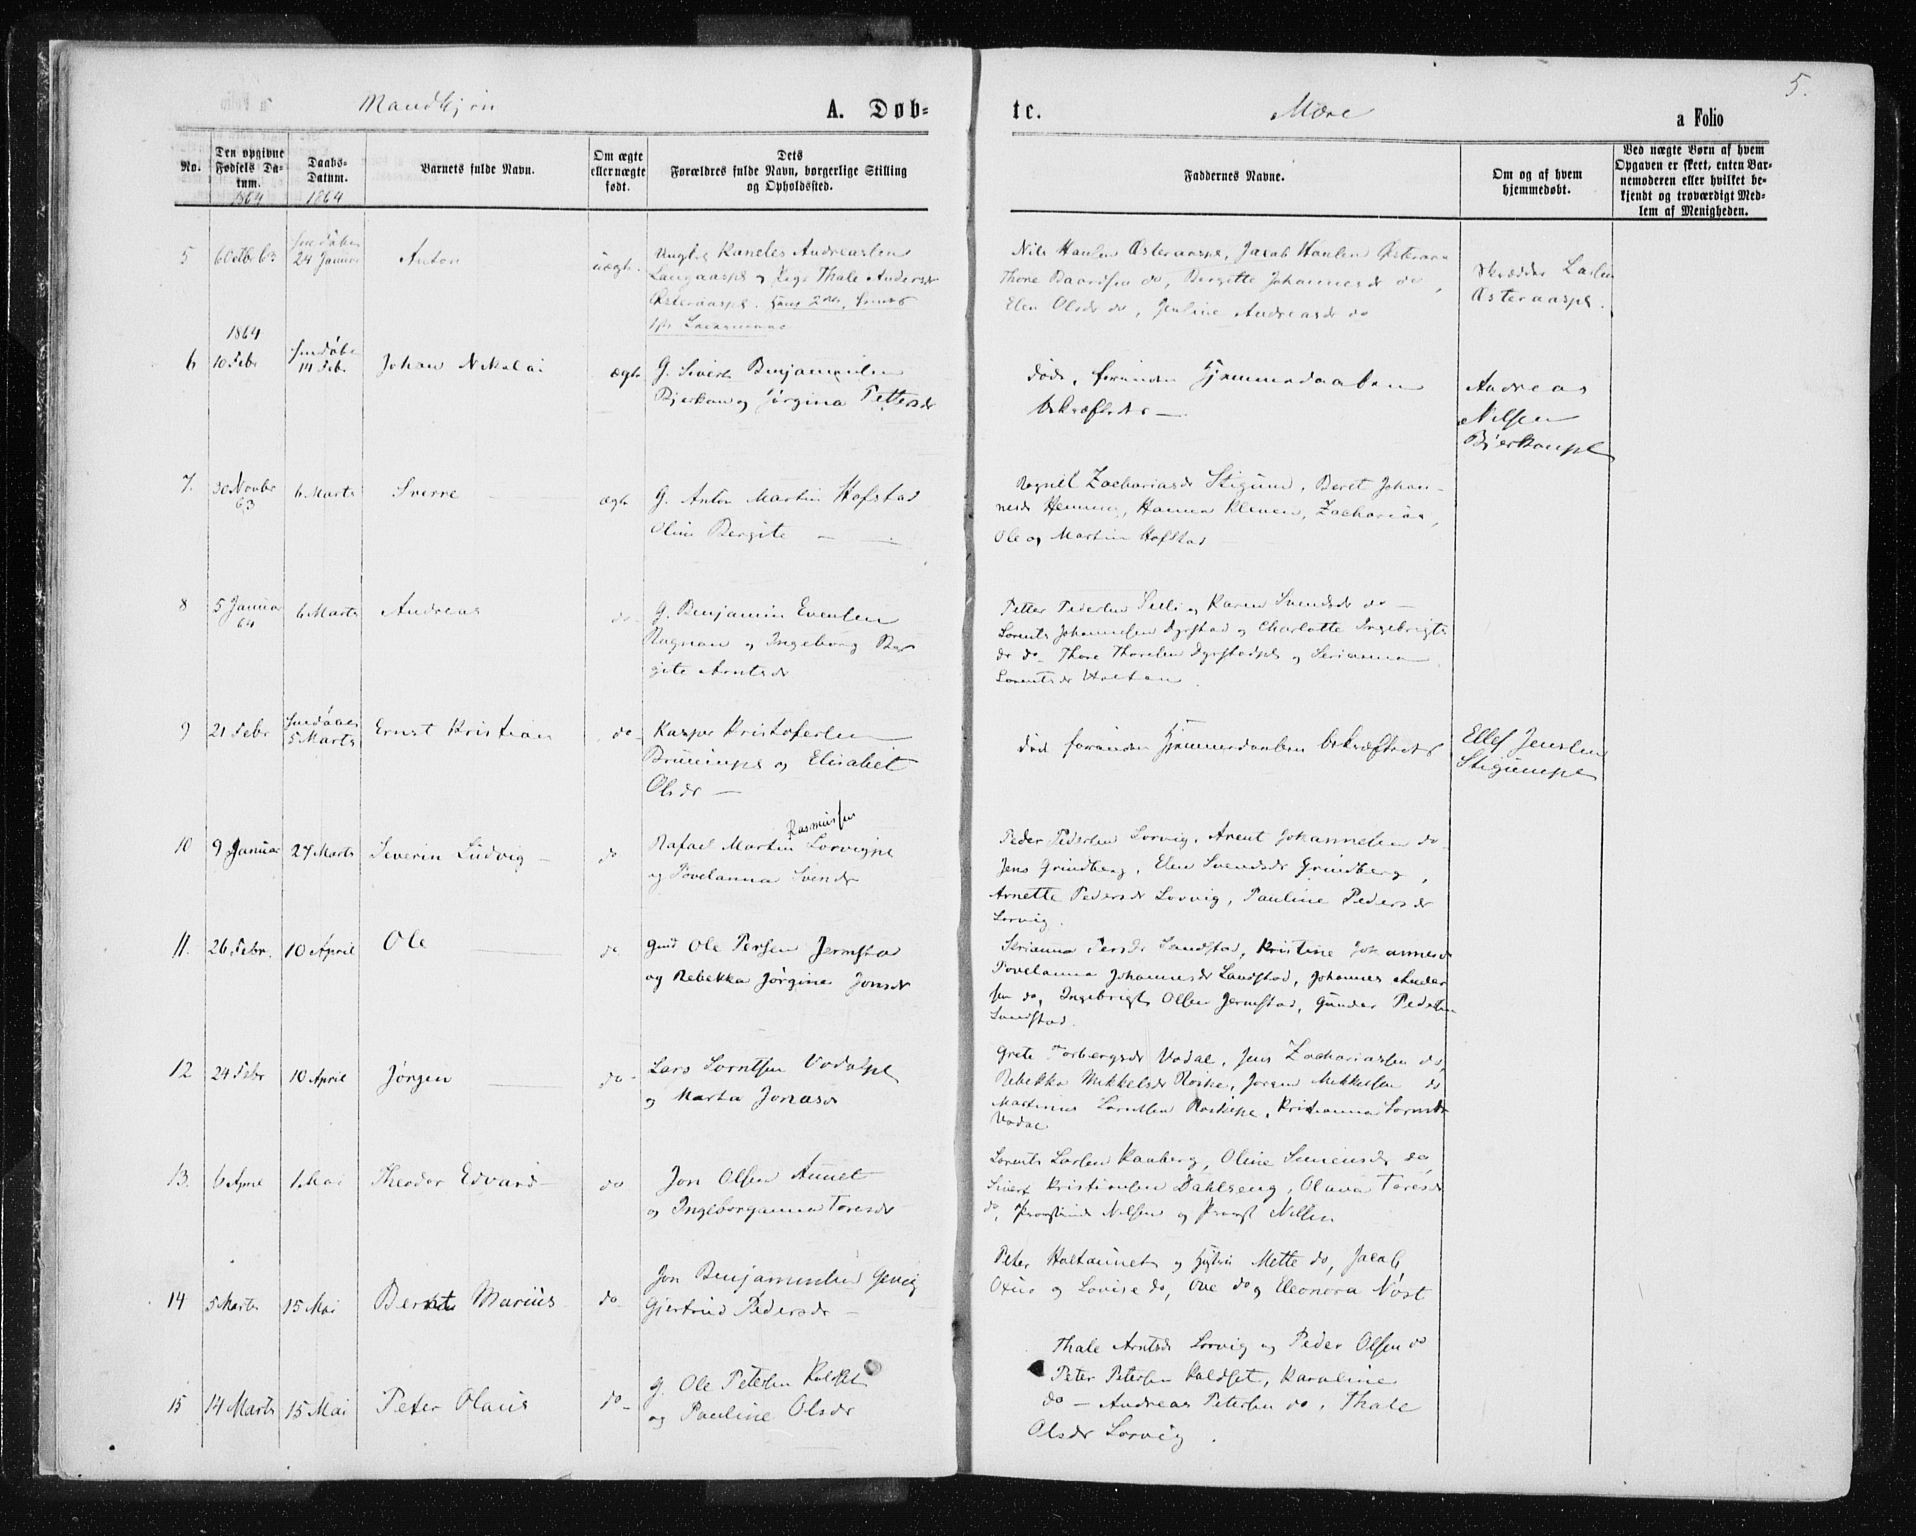 5.
Mandkjøn A. Døb= te. Mære a Folio
No.
Den opgivne Fødsels Da-tum.
1864
Daabs-Datum.
1864
Barnets fulde Navn.
Om ægte eller uægte født.
Dets Forældres fulde Navn, borgerlige Stilling og Opholdssted.
Faddernes Navne.
Om og af hvem hjemmedøbt.
Ved uægte Børn af hvem Opgaven er skeet, enten Barnemoderen eller hvilket bekjendt og troværdigt Medlem af Menigheden.
5
6 Octbr 63
24 Januar
Anton
uægte
Langaaspl og Pige Thale Andersdr
Østeraaspl.
Nils Hansen Østeraaspl, Jacob Hansen
Thore Baardsen do, Bergitte Johannesdr do,
Elen Olsdr do, Andreasdr do
Skrædder Larsen
Østeraaspl.
1864
6
10 Febr
14 Feb.
Johan Nikolai
ægte
G. Sivert Benjaminsen
Bjerkan og Jørgina Pettersdr
døde, forinden Hjemmedaaben
bekræftedes —
Andreas
Nilsen
Bjerkanpl
7.
30 Novbr
63
6 Marts
Sverre
ægte
G. Anton Martin Hofstad
Oline Bergite — —
Zachariasdr Stigum, Beret Johan-
nesdr Hemmen, Hanna Kleven, Zacharias,
Ole og Martin Hofstad
8
5 Januar
64
6 Marts
Andreas
do
G. Benjamin Evensen
Rognan og Ingeborg Ber
gite Arntsdr
Petter Pedersen Selli og Karen Svendsdr do —
Lorents Johannesen Dyrstad og Charlotte Ingebrigts
dr do. Thore Thoresen Dyrstadpl og Serianna
Lorentsdr Holtan
9
21 Febr
5 Marts
Ernst Kristian
do
Kasper Kristofersen
og Elisabet
Olsdr —
død forinden Hjemmedaaben bekræftedes
Ellef Jensen
Stigumpl
10
9 Januar
27 Marts
Severin Ludvig —
do
Rasmussen
Rafael Martin Lorvigpl
og Povelanna Svendsdr
Peder Pedersen Lorvig, Arent Johannesen do
Jens Grindberg, Elen Svendsdr Grindberg,
Arnette Pedersdr Lorvig, Pauline Pedersdr
Lorvig.
11.
26 Febr.
10 April
Ole
do
Gmd Ole Persen Jermstad
og Rebekka Jørgine Jonsdr
Serianna Persdr Sandstad, Kristine Johannesdr
Povelanna Johannesdr Sandstad, Johannes Ander
sen do, Ingebrigt Olsen Jermstad, Gunder Pedersen
Sandstad.
12
24 Febr
10 April
Jørgen
do
Lars Lorntsen Vodalpl
og Marta Jonasdr
Grete Torbergsdr Vodal, Jens Zachariassen do,
Rebekka Mikkelsdr Røske, Joren Mikkelsen do
Martinus Lorntsen Røskepl, Kristianna Lorntsdr
Vodal
13.
6 April
1 Mai
Theodor Edvard
do
Jon Olsen Aunet
og Ingeborganna Toresdr
Lorents Larsen Kaaberg, Oline Simensdr do,
Sivert Kristiansen Dahlseng, Olava Toresdr
do, Nilsen og Nilsen
14
5 Marts
15 Mai
Bernt Marius
do
Jon Benjaminsen Gevig
Gjertrud Pedersdr —
Peter Holtaunet og Hustru Mette do, Jacob
Oxus og Lovise do, Ove do og Eleonora Nøst
15
14 Marts
15 Mai
Peter Olaus
do
G. Ole Petersen Koldset
og Pauline Olsdr
Thale Arntsdr Lorvig og Peder Olsen do
Peter Petersen Koldset, Karoline
do — Andreas Petersen do, Thale
Olsdr Lorvig.